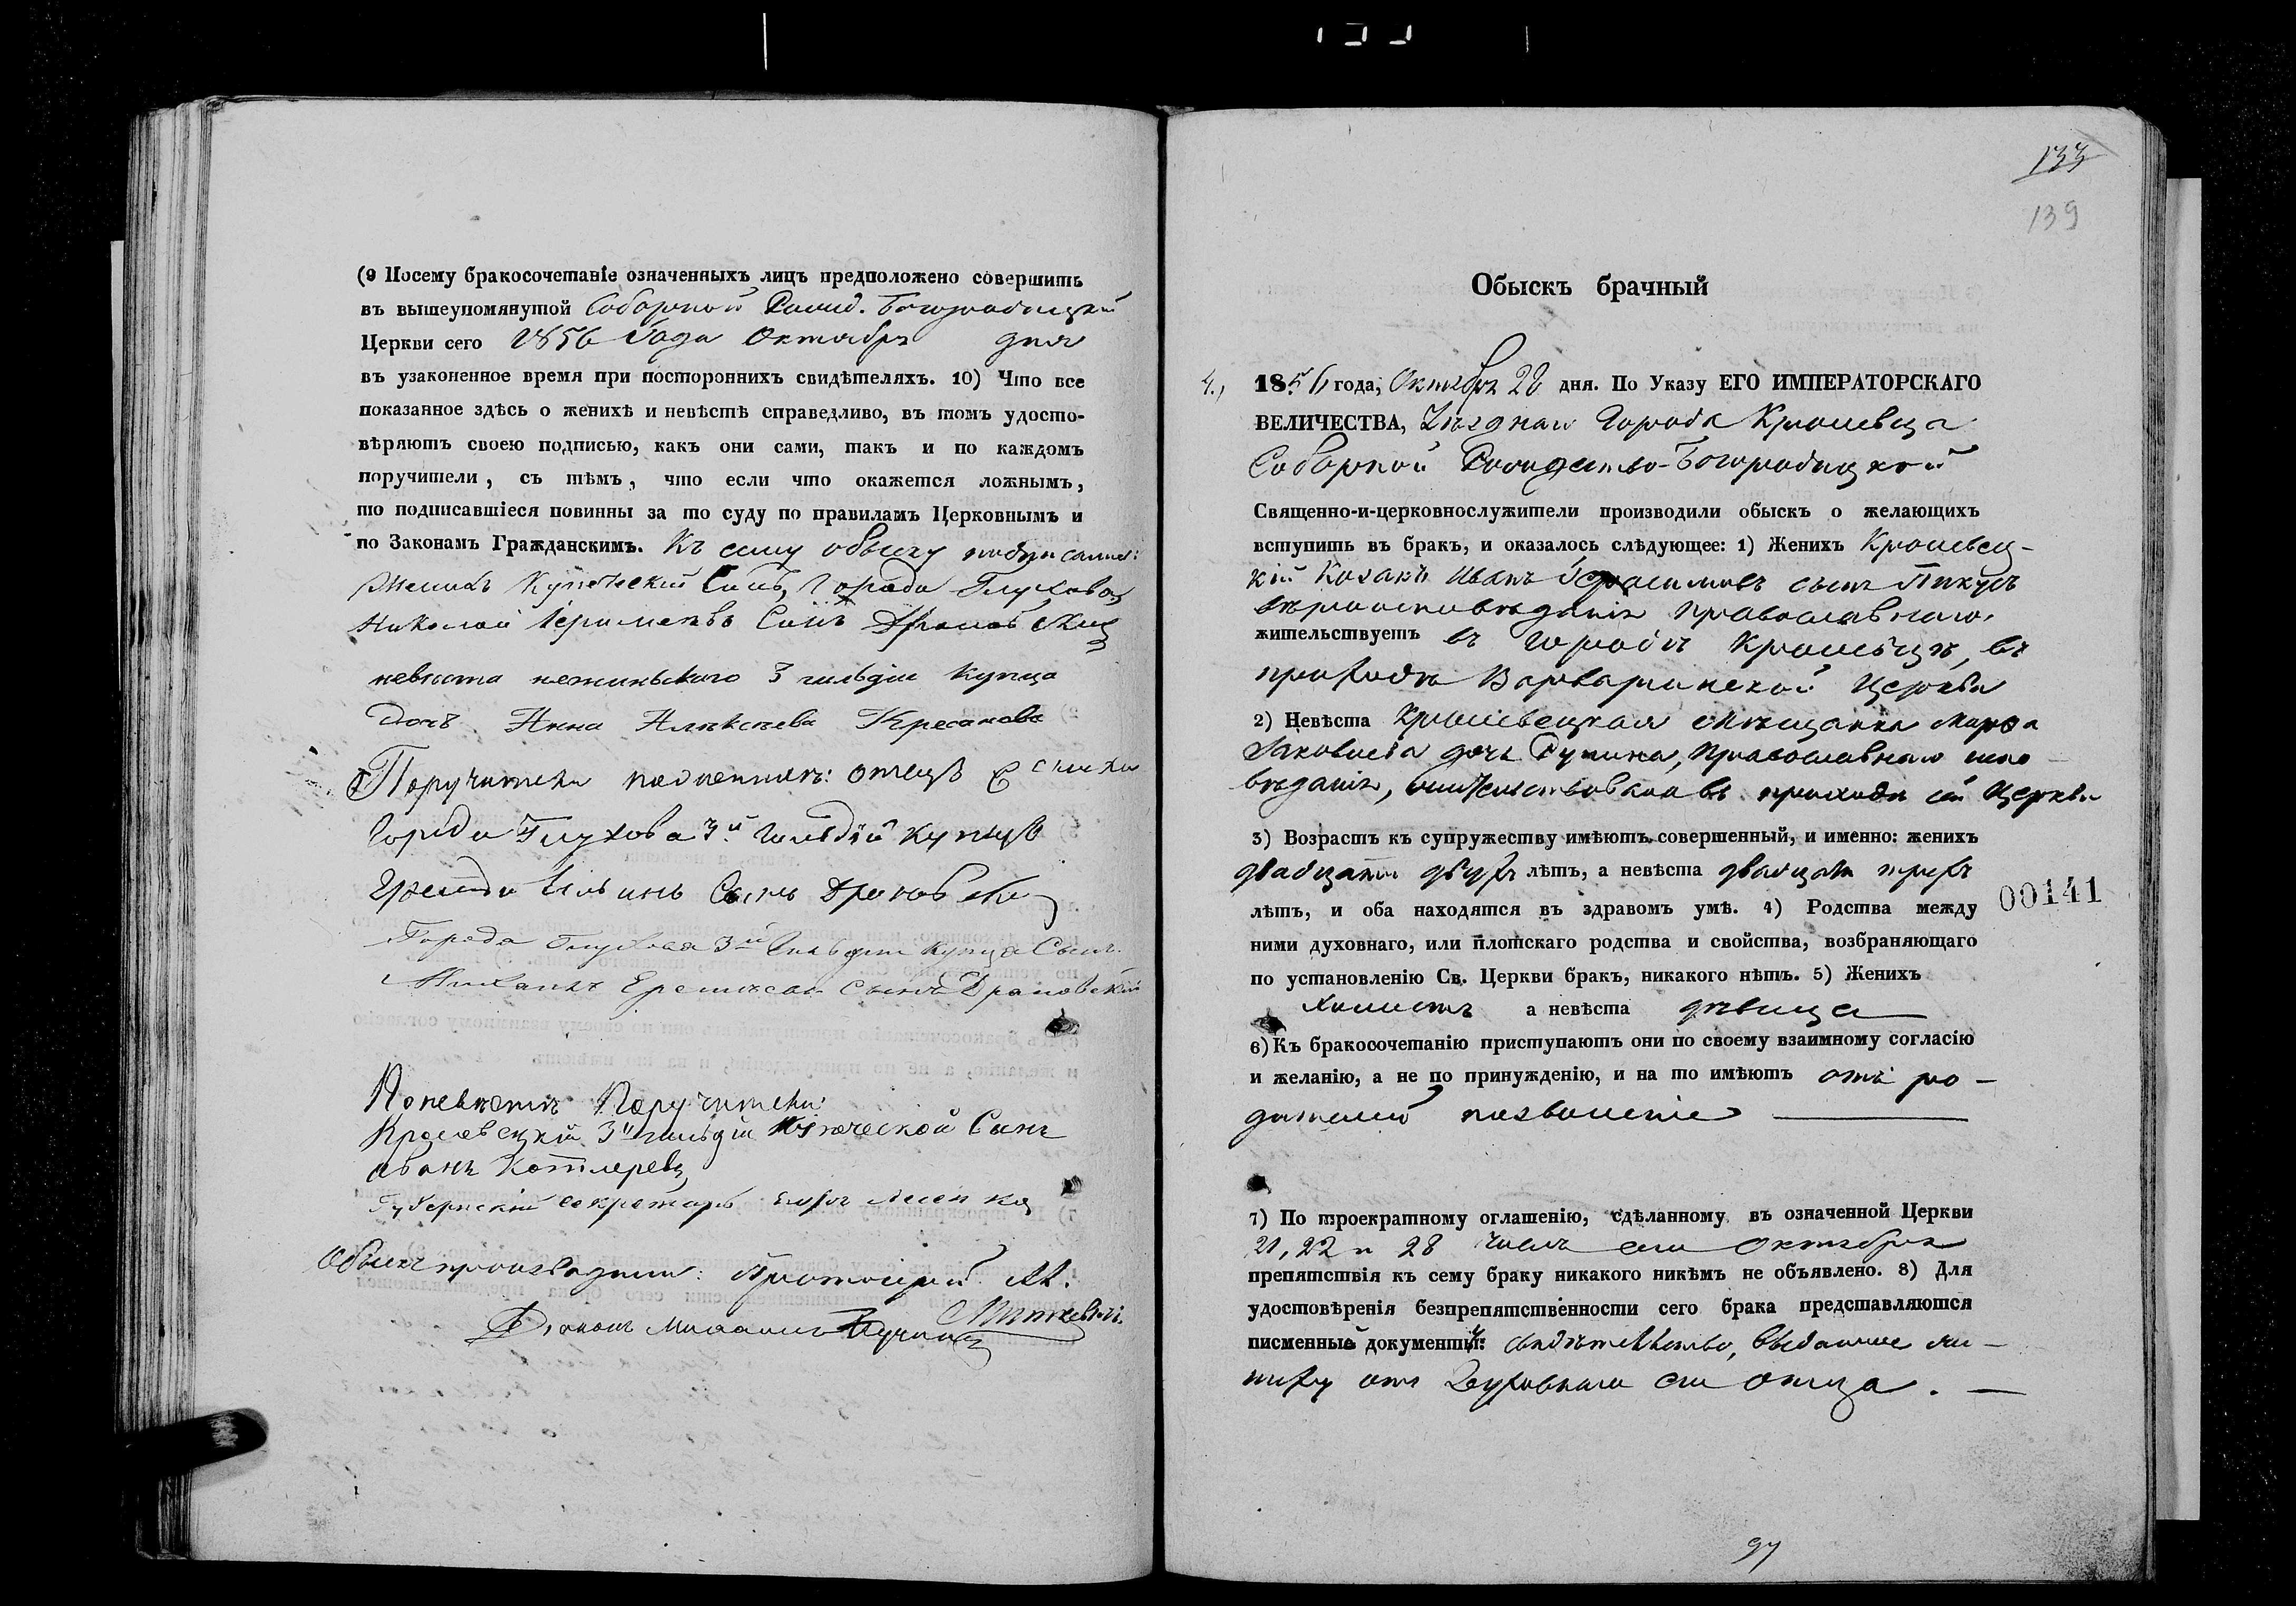 (9 Посему бракосочетаніе означенныхъ лицъ предположено совершить
въ вышеупомянутой Соборной Рожд. Богородицкой
Церкви сего 1856 года Октября дня
въ узаконенное время при постороннихъ свидѣтеляхъ. 10) Что все
показанное здѣсь о женихѣ и невѣстѣ справедливо, въ томъ удосто-
вѣряютъ своею подписью, какъ они сами, такъ и по каждомъ
поручители, съ тѣмъ, что если что окажется ложнымъ,
то подписавшіеся повинны за то суду по правиламъ Церковнымъ и
по Законамъ Гражданскимъ. Къ сему обыску
Женихъ Купеческий Сынъ, Города Глухова
Николай Сынъ
невѣста нежиньского 3 гильдіи купца
дочь Анна Алексѣева
Поручители по женихѣ: отецъ
Города Глухова 3й Гильдій купецъ
Ильинъ Сынъ Дроновский
Города Глухова 3й Гильдіи купца Сынъ
Михаилъ Сынъ Дроновский
По невѣстѣ Поручители
Кролевецкій 3й гильдіи купеческой Сынъ
Иванъ Котляревъ
Губернскій секретарь
Обыскъ производили: Протоіерей
Дьяконъ Михаилъ
133
139
Обыскъ брачный
4.) 1856 года, Октября 28 дня. По Указу ЕГО ИМПЕРАТОРСКАГО
ВЕЛИЧЕСТВА, Уѣзднаго Города Кролевца
Соборной Рождество-Богородицкой
Священно-и-церковнослужители производили обыскъ о желающихъ
вступить въ бракъ, и оказалось слѣдующее: 1) Женихъ Кролевец-
кій Козакъ Иванъ Герасимовъ сынъ Пикусъ
вѣроисповѣданія православнаго,
жительствуетъ въ городѣ Кролевцѣ, въ
приходѣ Варваринской Церкви
2) Невѣста Кролевецкая мѣщанка Марфа
Яковлева дочь Православнаго испо-
вѣданія, жительствовала въ приходѣ сей Церкви
3) Возрастъ къ супружеству имѣютъ совершенный, и именно: женихъ
двадцати двухъ лѣтъ, а невѣста двадцати трехъ
лѣтъ, и оба находятся въ здравомъ умѣ. 4) Родства между
ними духовнаго, или плотскаго родства и свойства, возбраняющаго
по установленію Св. Церкви бракъ, никакого нѣтъ. 5) Женихъ
холостъ а невѣста дѣвица
6) Къ бракосочетанію приступаютъ они по своему взаимному согласію
и желанію, а не по принужденію, и на то имѣютъ отъ ро-
дителей позволеніе
7) По троекратному оглашенію, сдѣланному въ означенной Церкви
21, 22 и 28 числъ сего Октября
препятствія къ сему браку никакого никѣмъ не объявлено. 8) Для
удостовѣренія безпрепятственности сего брака представляются
писменные документы: свидѣтельство, выданное же-
ниху отъ Духовнаго его отца.
00141
97